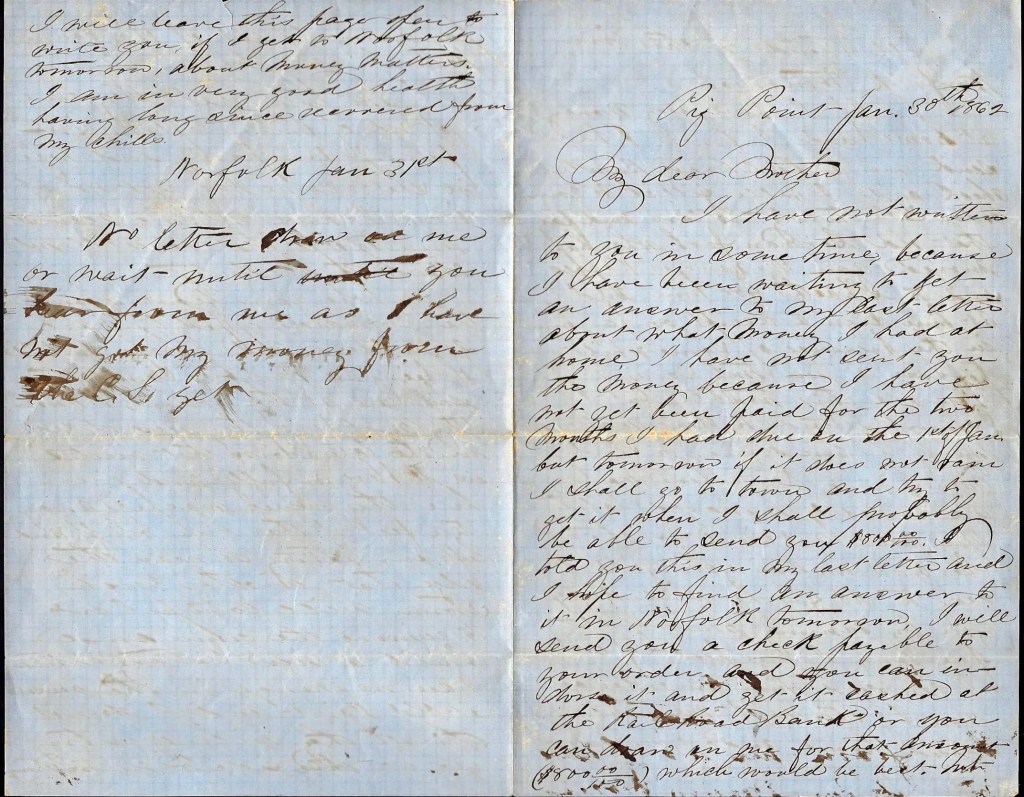 I will leave this page open to
write you, if I get to Norfolk
tomorrow, about money matters.
I am in very good health
having long since recovered from
my chills.
Norfolk Jan 31st
No letter draw on me
or wait until you
hear from me as I have
not got my money from
the C. S. yet
Pig Point Jan. 30th 1862
My dear Brother
I have not written
to you in some time, because
I have been waiting to get
an answer to my last letter
about what money I had at
home. I have not sent you
the money because I have
not yet been paid for the two
months I had due on the 1st of Jan
but tomorrow if it does not rain
I shall go to town and try to
get it when I shall probably
be able to send you $800 00/100. I
told you this in my last letter and
I hope to find an answer to
it in Norfolk tomorrow, I will
send you a check payable to
your order and you can in-
dorse it and get it cashed at
the Rail Road Bank or you
can draw on me for that amount
($800 00/100) which would be best.